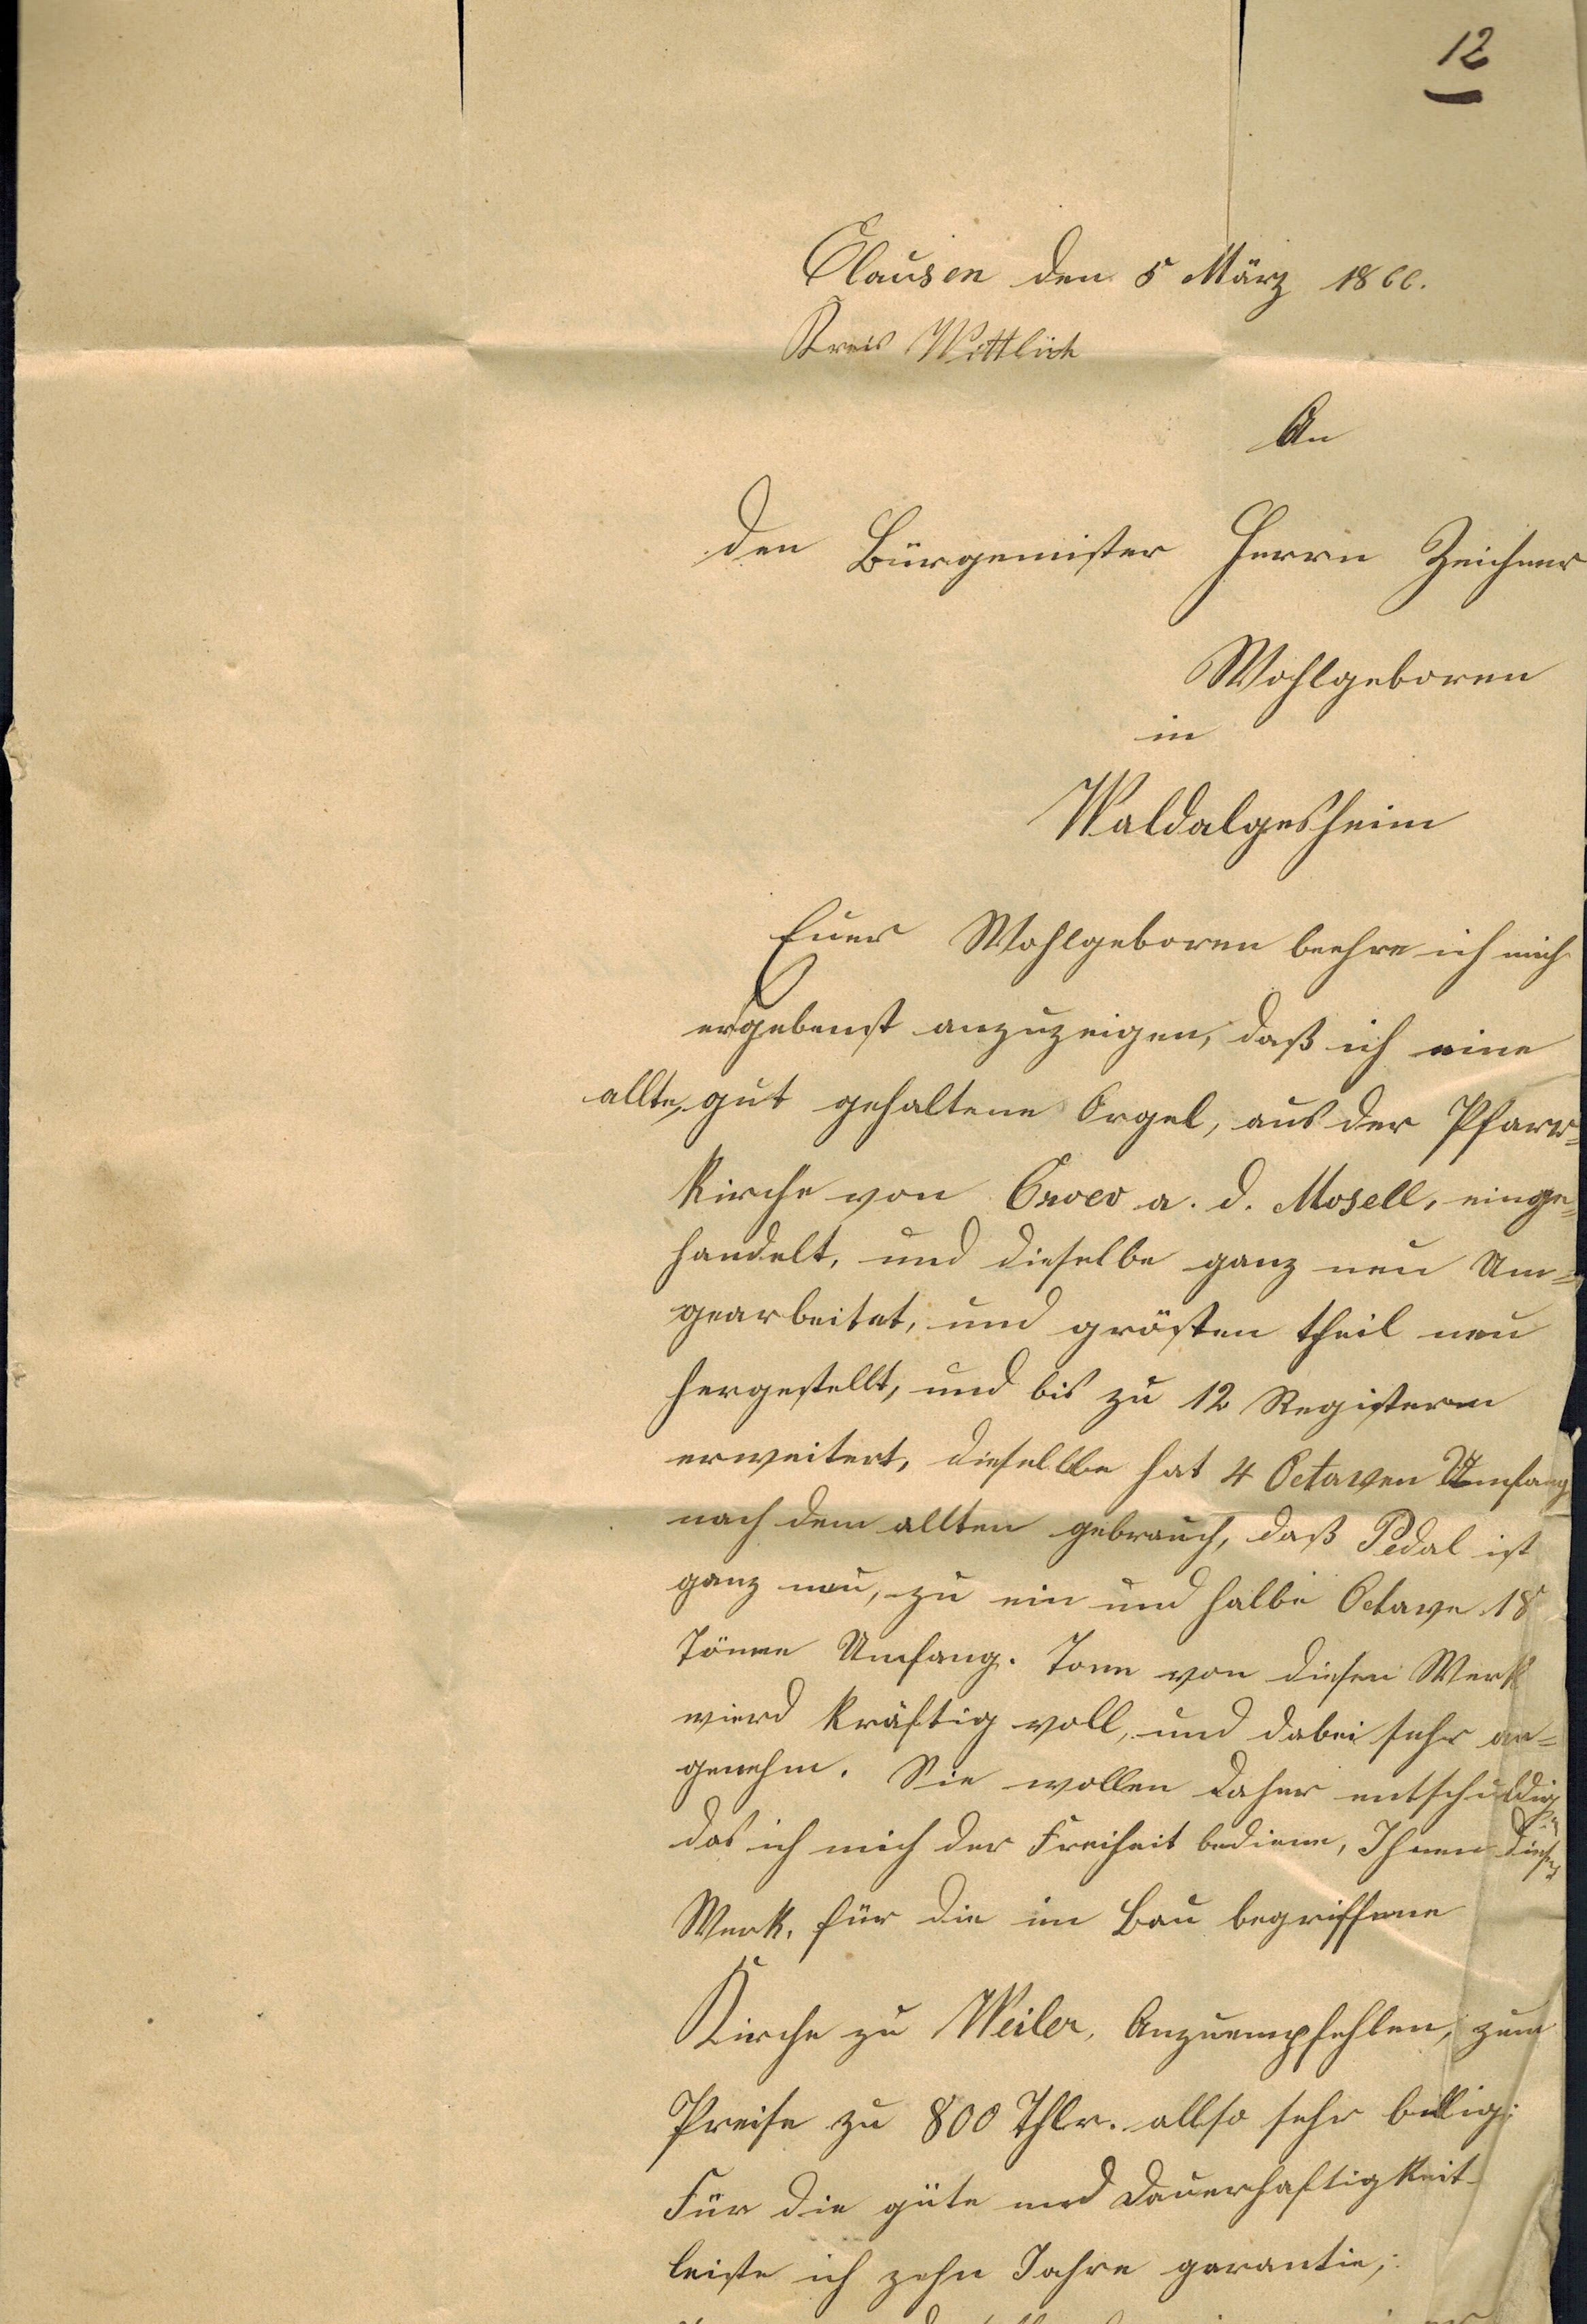 12
Clausen den 5 März 1866.
Kreis Wittlich
An
den Bürgemister Herrn Zeichner
Wohlgeboren
in
Waldalgesheim
Euer Wohlgeboren beehre ich mich
ergebenst anzuzeigen, daß ich eine
allte, gut gehaltene Orgel, aus der Pfarr=
kirche von Croev a. d. Mosell, einge=
handelt, und dieselbe ganz neu Um=
gearbeitet, und grösten theil neu
hergestellt, und bis zu 12 Registern
erweitert, diesellbe hat 4 Octaven Umfang
nach dem allten gebrauch, daß Pedal ist
ganz neu, zu ein und halbe Octave 18
Tönne Umfang. Tonn von diesen Werk
wierd kräftig voll, und dabei sehr an=
genehm. Sie wollen daher entschuldigen
das ich mich der Freiheit bediene, Ihnen dieses
Werk, für die im Bau begriffene
Kirche zu Weiler, Anzuempfehlen, zum
Preise zu 800 Thlr. allso sehr billig;
Für die güte und Dauerhaftigkeit
leiste ich zehn Jahre garantie;